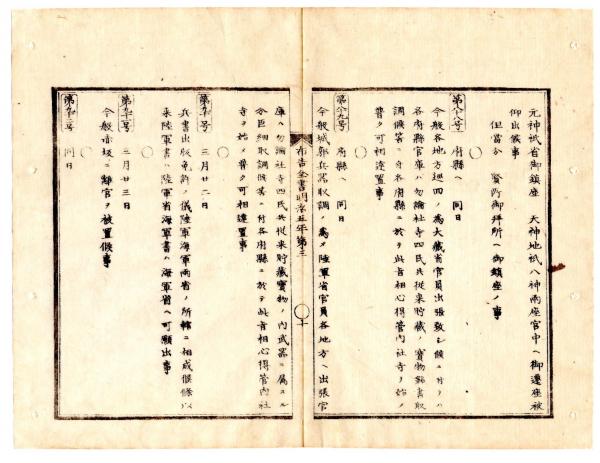 元神祇省御鎮座 天神地祇八神兩座宮中ヘ御遷座被
仰出候事
但當分 賢所御拜所ヘ御鎮座ノ事
第八十八号 同日
府縣ヘ
今般各地方巡回ノ為大藏省官員出張致シ候ニ付テハ
各府縣官庫ハ勿論社寺四民共從來貯藏ノ寶物類書取
調候筈ニ付各府縣ニ於テ此旨相心得管内社寺ヲ始メ
普ク可相達置事
第八十九号 同日
府縣ヘ
今般城郭兵器取調ノ為メ陸軍省官員各地方ヘ出張官
布告全書明治五年第三
十
庫ハ勿論社寺四民共從來貯藏寶物ノ内武器ニ屬スル
分巨細取調候筈ニ付各府縣ニ於テ此旨相心得管内社
寺ヲ始メ普ク可相達置事
第九十一号 三月廿二日
兵書出版免許ノ儀陸軍海軍兩省ノ所轄ニ相成候條以
來陸軍書ハ陸軍省海軍書ハ海軍省ヘ可願出事
三月廿三日
今般
御宮ヲ被置候事
同日